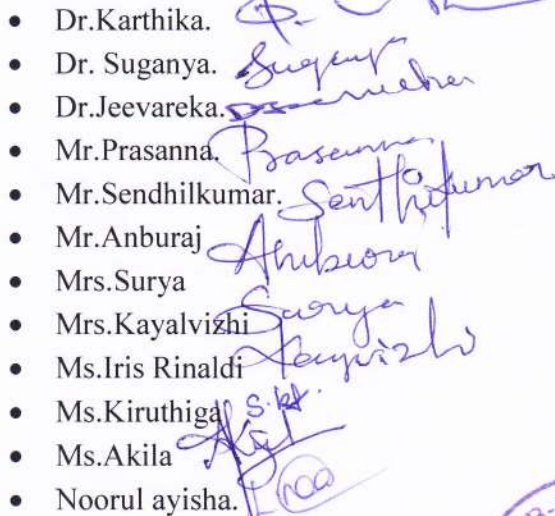 • Dr.Karthika.
• Dr. Suganya. Suganya
• Dr.Jeevareka.
• Mr.Prasanna. Prasanna
• Mr.Sendhilkumar. Senthilkumar
• Mr.Anburaj
• Mrs.Surya Surya
• Mrs.Kayalvizhi
• Ms.Iris Rinaldi
• Ms.Kiruthiga S.kt.
• Ms.Akila
• Noorul ayisha.